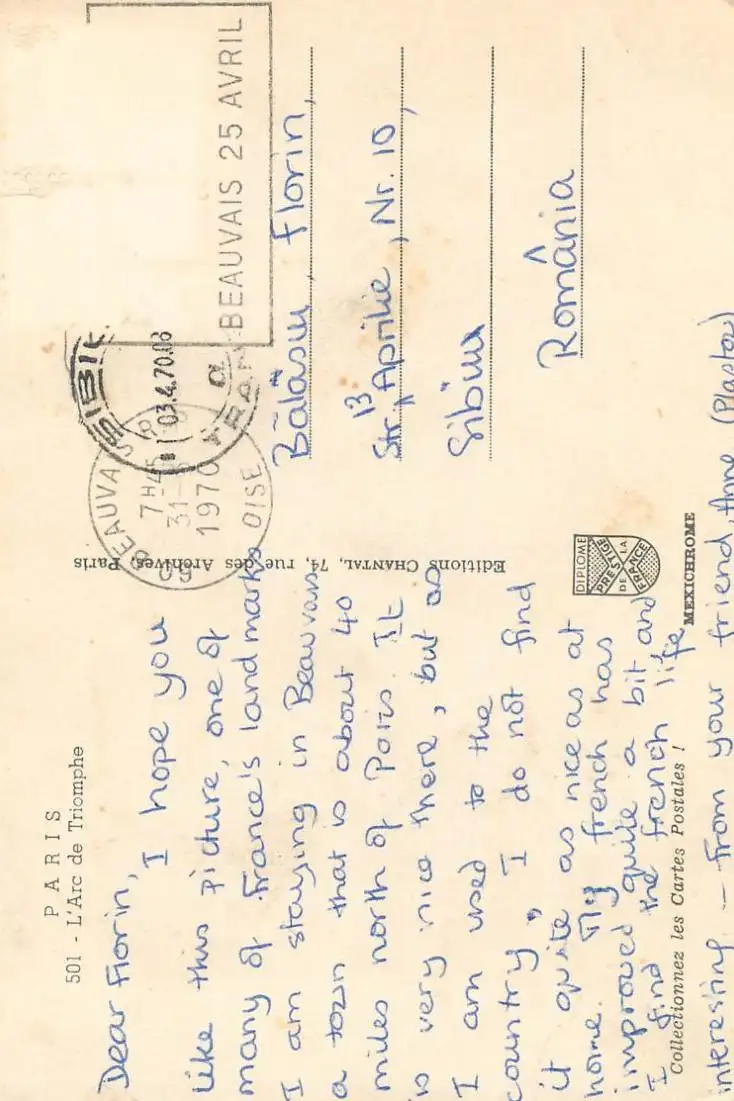 PARIS
501 - L'Arc de Triomphe
Dear Florin,
I hope you
like this picture, one of
many of France's landmarks
I am staying in Beauvais
a town that is about 40
miles north of Paris. It
is very nice there, but as
I am used to the
country, I do not find
it quite as nice as at
home. My french has
improved quite a bit and
I find the french life
interesting - from your friend, Anne (Plaster)
Collectionnez les Cartes Postales !
Editions CHANTAL, 74, rue des Archives, Paris
DIPLOME
PRESTIGE
DE LA
FRANCE
MEXICHROME
BEAUVAIS
7H45
31-
1970
60 OISE
SIBIU
03.4.70.08
a
BEAUVAIS 25 AVRIL
Bălășu, Florin,
13
Str. Aprilie, Nr. 10,
Sibiu
România